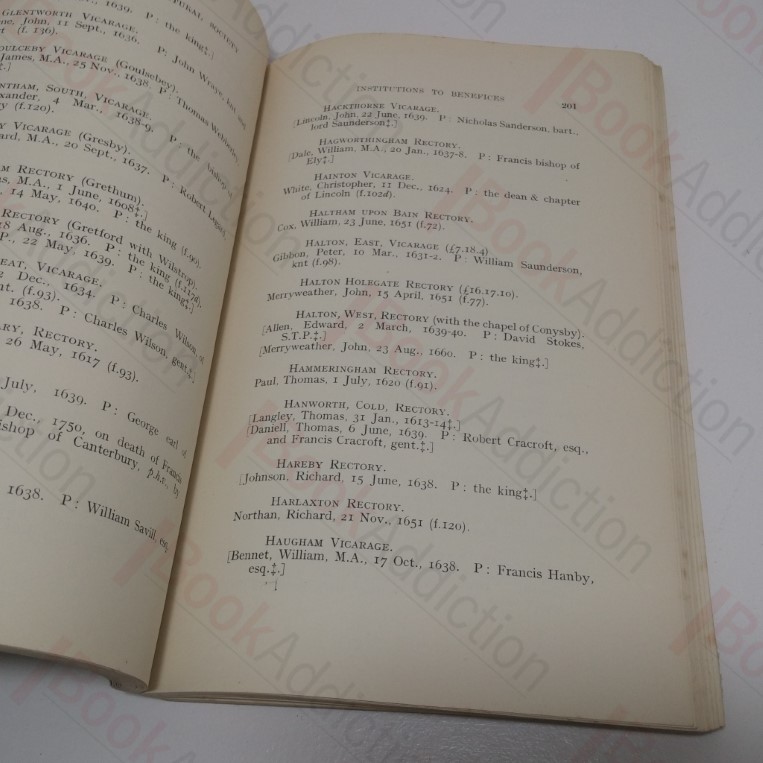 1639. P: the king‡.)
TURAL SOCIETY
GLENTWORTH VICARAGE.
John, 11 Sept., 1636. P: John Wraye, bar. and
(f. 136).
OULCEBY VICARAGE (Goulsebey).
James, M.A., 25 Nov., 1638. P: Thomas
‡.]
NTHAM, SOUTH, VICARAGE.
xander, 4 Mar., 1638-9. P: the bishop of
(f.120).
Y VICARAGE (Gresby).
ard, M.A., 20 Sept., 1637. P: Robert
M RECTORY (Grethum).
as, M.A., 1 June, 1608‡.]
14 May, 1640. P: the king (f.90).
RECTORY (Gretford with Wilstrop).
28 Aug., 1636. P: the king (f.117d).
P., 22 May, 1639. P: the king‡.]
EAT, VICARAGE.
2 Dec., 1634. P: Charles Wilson, of
nt. (f.93).
1638. P: Charles Wilson, gent.‡.]
ARY, RECTORY.
26 May, 1617 (f.93).
July, 1639. P: George earl of
Dec., 1750, on death of Francis
shop of Canterbury, p.h.v., by
1638. P: William Savill, esq.
INSTITUTIONS TO BENEFICES 201
HACKTHORNE VICARAGE.
[Lincoln, John, 22 June, 1639. P: Nicholas Sanderson, bart.,
lord Saunderson‡.]
HAGWORTHINGHAM RECTORY.
[Dale, William, M.A., 20 Jan., 1637-8. P: Francis bishop of
Ely‡.]
HAINTON VICARAGE.
White, Christopher, 11 Dec., 1624. P: the dean & chapter
of Lincoln (f.102d).
HALTHAM UPON BAIN RECTORY.
Cox, William, 23 June, 1651 (f.72).
HALTON, EAST, VICARAGE (£7.18.4)
Gibbon, Peter, 10 Mar., 1631-2. P: William Saunderson,
knt (f.98).
HALTON HOLEGATE RECTORY (£16.17.10).
Merryweather, John, 15 April, 1651 (f.77).
HALTON, WEST, RECTORY (with the chapel of Conysby).
[Allen, Edward, 2 March, 1639-40. P: David Stokes,
S.T.P.‡.]
[Merryweather, John, 23 Aug., 1660. P: the king‡.]
HAMMERINGHAM RECTORY.
Paul, Thomas, 1 July, 1620 (f.91).
HANWORTH, COLD, RECTORY.
[Langley, Thomas, 31 Jan., 1613-14‡.]
[Daniell, Thomas, 6 June, 1639. P: Robert Cracroft, esq.,
and Francis Cracroft, gent.‡.]
HAREBY RECTORY.
[Johnson, Richard, 15 June, 1638. P: the king‡.]
HARLAXTON RECTORY.
Northan, Richard, 21 Nov., 1651 (f.120).
HAUGHAM VICARAGE.
[Bennet, William, M.A., 17 Oct., 1638. P: Francis Hanby,
esq.‡.]
BookAddiction